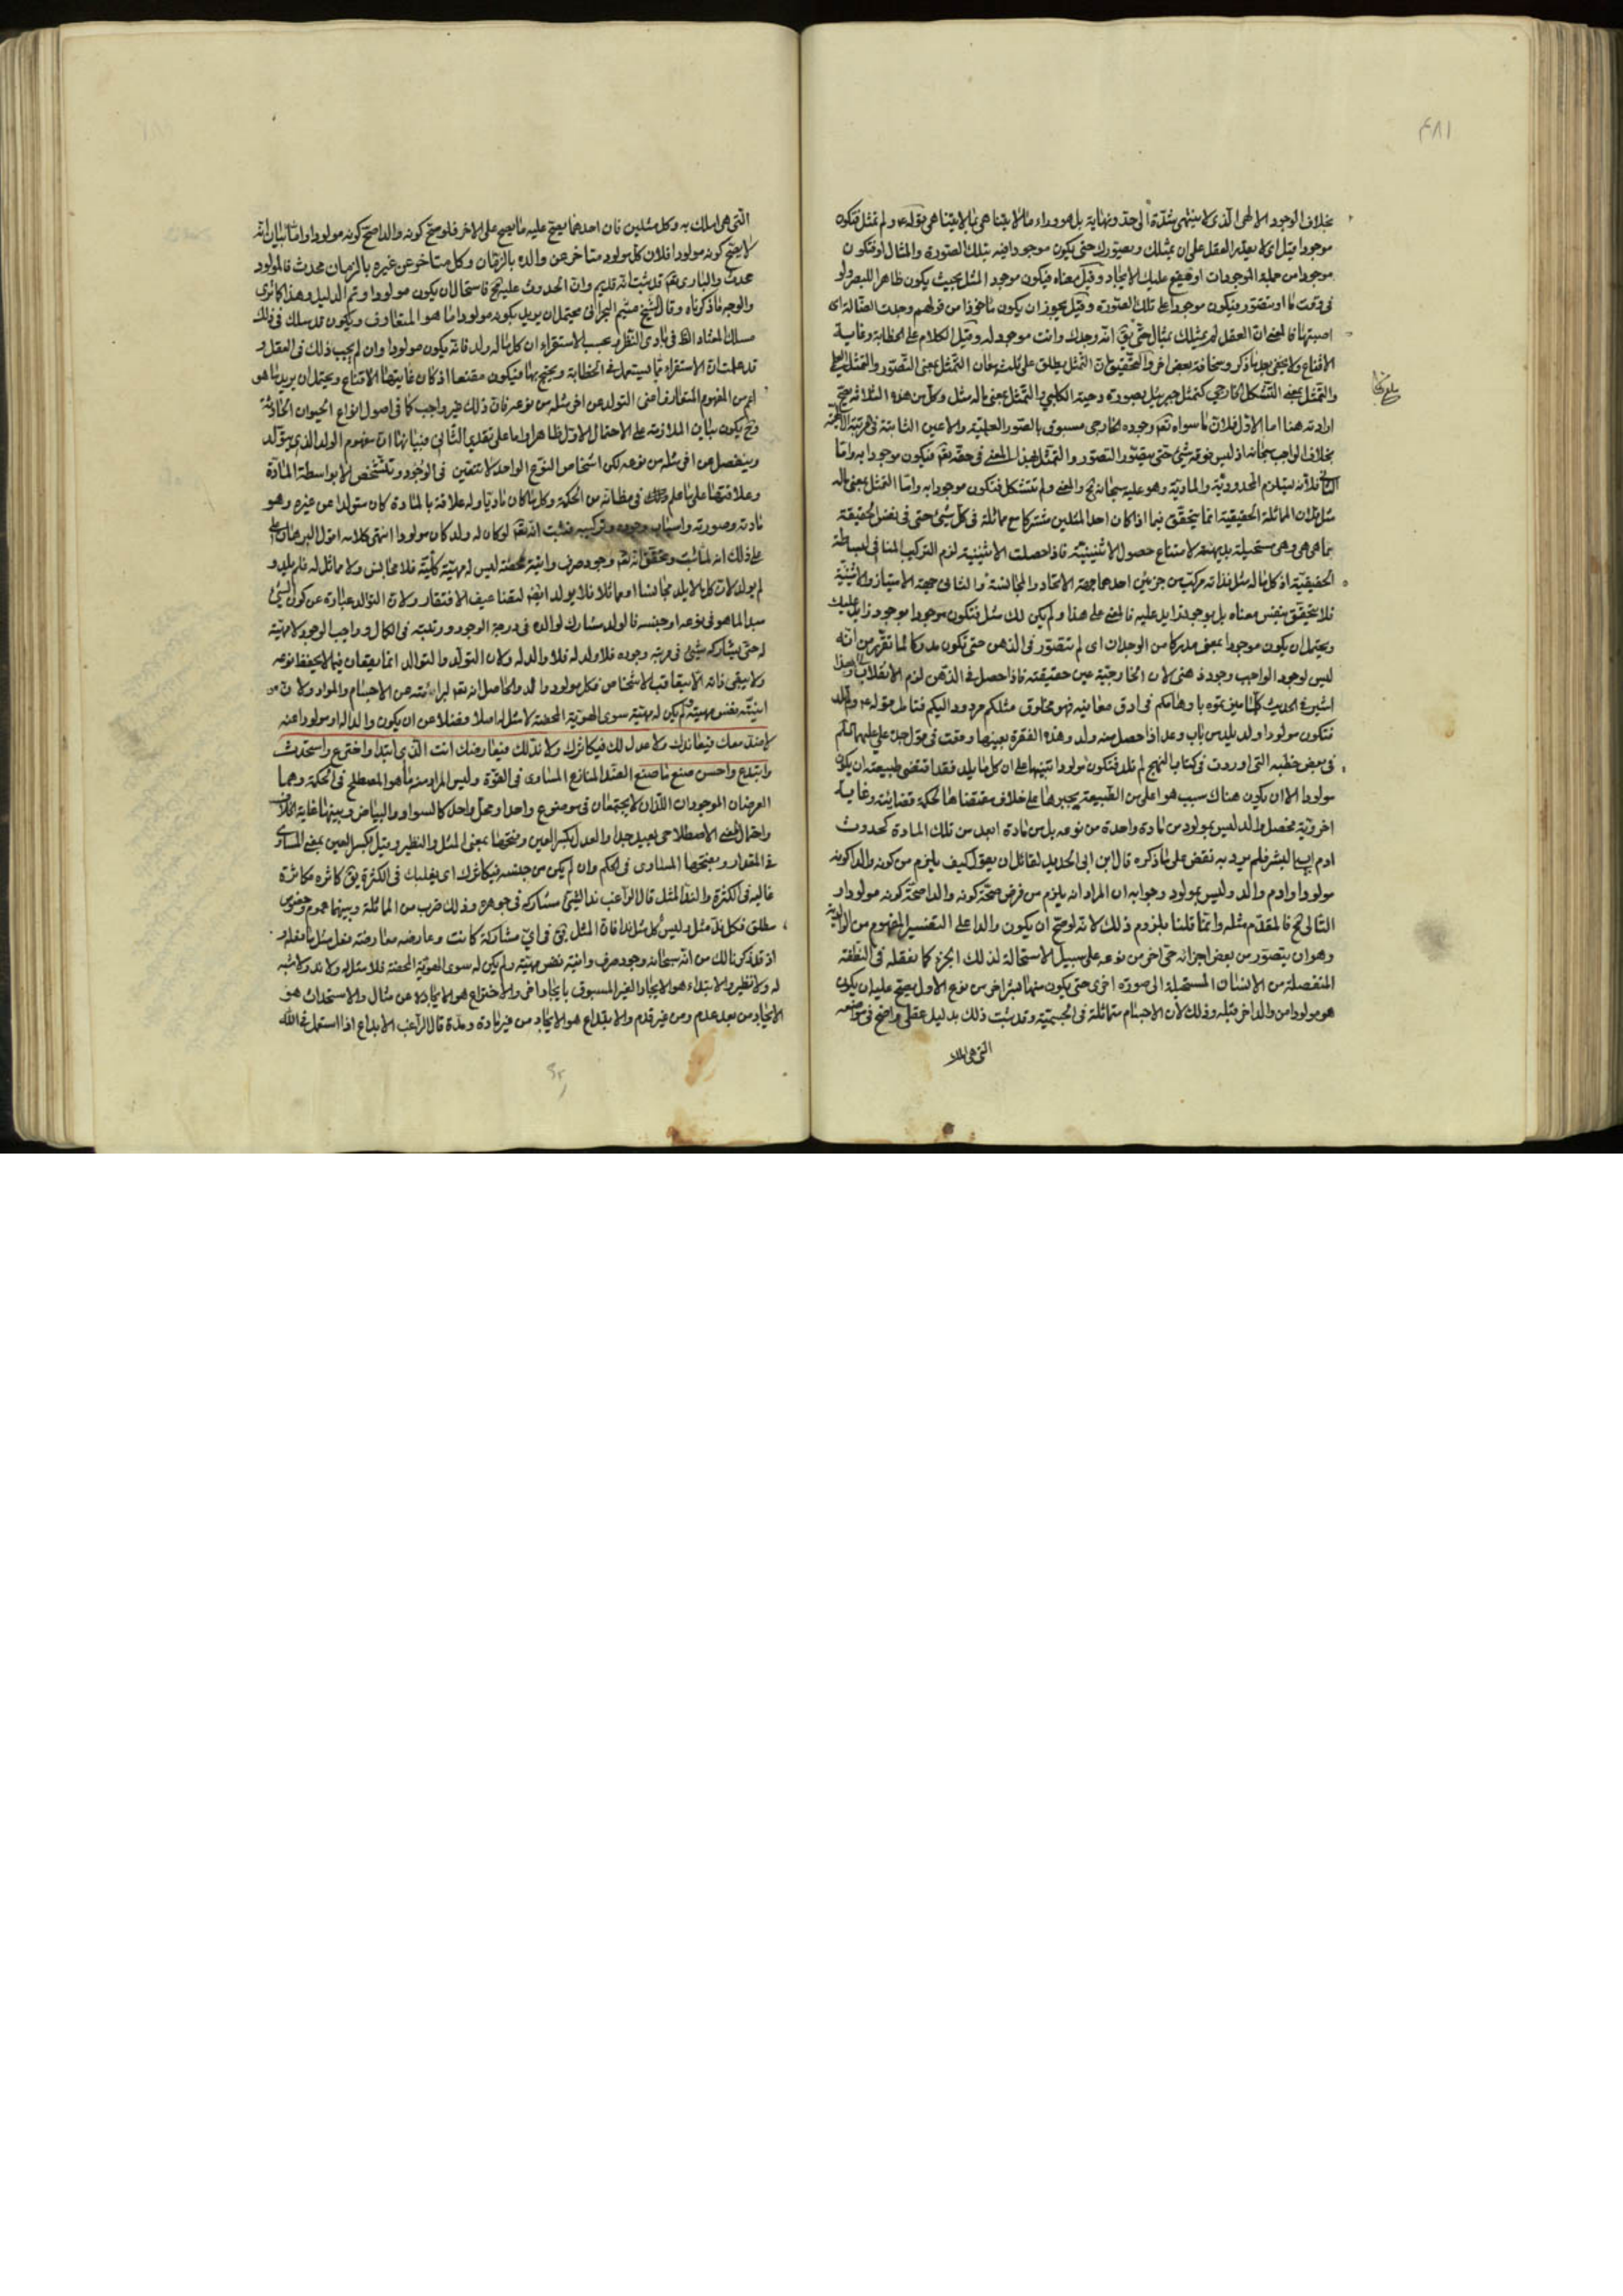 ٤٨١
بخلاف الوجود الالهى الذى لا ينتهى شدته الى حد ونهاية بل هو وراء ما لا يتناهى بما لا يتناهى قوله ولم تمثل فتكون
موجودا قيل اى لا يقدر العقل على ان يمثلك ويصورك حتى يكون موجودا فيه بتلك الصورة والمثال او فتكون
موجودا من جملة الموجودات او فيقع عليك الايجاد وقيل معناه فيكون موجود المثل بحيث يكون ظاهرا للبصر ولو
فى وقت ما او متصور فيكون موجودا على تلك الصورة وقيل يجوز ان يكون ماخوذا من قولهم وجدت الضالة اى
اصبتها فالمعنى ان العقل لم يمثلك بمثال حتى يق انه وجدك وانت موجود له وقيل الكلام على الخطابة وغاية
الاقناع ولا يخفى بعد ما ذكر وسخافة بعض اخر والتحقيق ان التمثل يطلق على ثلث معان التمثل بمعنى التصور والتمثل العقلى
والتمثل بمعنى التشكل الخارجى كتمثل جبرئيل بصورة دحية الكلبي والتمثل بمعنى ماله مثل وكل من هذه الثلاثة يصح
ارادته هنا اما الاول فلان ما سواه تعه وجوده الخارجى مسبوق بالصور العلمية والاعيان الثابتة فى مرتبة الالهية
بخلاف الواجب سبحانه اذ ليس فوقه شئ حتى يتصور التصور والتمثل بهذا المعنى فى حقه تعه فيكون موجودا به واما
الثانى فلانه يستلزم المحدودية والمادية وهو عليه سبحانه مح والمعنى ولم تتشكل فتكون موجودا به واما التمثل بمعنى ماله
مثل فلان المماثلة الحقيقية انما يتحقق فيما اذا كان احد المثلين مشتركا مع مماثله فى كل شئ حتى فى نفس الحقيقة
بما هى هى وهى مستحيلة بديهة لامتناع حصول الاثنينية فاذا حصلت الاثنينية لزم التركيب المنافى لبساطة
الحقيقية اذ كل ماله مثل فذاته مركبة من جزئين احدهما جهة الاتحاد والمجانسة والثانى جهة الامتياز والاثنينية
فلا يتحقق بنفس معناه بل بوجود زايد عليه فالمعنى على هذا ولم يكن لك مثل فتكون موجودا بوجود زايد عليك
ويحتمل ان يكون موجودا بمعنى مدركا من الوجدان اى لم تتصور فى الذهن حتى تكون مدركا لما تقرر من انه
ليس لوجود الواجب وجود ذهنى لان الخارجية عين حقيقته فاذا حصل فى الذهن لزم الانقلاب وبهذا
اشير فى الحديث كلما ميزتموه باوهامكم فى ادق معانيه فهو مخلوق مثلكم مردود اليكم فتامل قوله ولم تلد
فتكون مولودا ولد يلد من باب وعد اذا حصل منه ولد وهذه الفقرة بعينها وقعت فى قول جده على عليهما السلم
فى بعض خطبه التى اوردت فى كتاب النهج لم تلد فتكون مولودا تنبيها على ان كل ما يلد فقد اقتضى طبيعته ان يكون
مولودا الا ان يكون هناك سبب هو اعلى من الطبيعة يجبرها على خلاف مقتضاها لحكمة قضائية وغاية
اخروية فحصل والد ليس بمولود من مادة واحدة من نوعه بل من مادة ابعد من تلك المادة كحدوث
ادم ابى البشر فلم يرد به نقض على ما ذكره قال ابن ابى الحديد لقائل ان يقول كيف يلزم من كونه والدا كونه
مولودا وادم والد وليس بمولود وجوابه ان المراد انه يلزم من فرض صحة كونه والدا صحة كونه مولودا و
التالى مح فالمقدم مثله وانما قلنا بلزوم ذلك لانه لو صح ان يكون والدا على التفسير المفهوم من الوالدية
وهو ان يتصور من بعض اجزائه حى اخر من نوعه على سبيل الاستحالة لذلك الجزء كما نعقله فى النطفة
المنفصلة من الانسان المستحيلة الى صورة اخرى حتى يكون منها بشر اخر من نوع الاول يصح عليه ان يكون
هو مولودا من والد اخر مثله وذلك لان الاجسام متماثلة فى الجسمية وقد ثبت ذلك بدليل عقلى واضح فى مواضعه
التى هى املك به وكل مثلين فان احدهما يصح عليه ما يصح على الاخر فلو صح كونه والدا صح كونه مولودا واما بيان انه
لا يصح كونه مولودا فلان كل مولود متاخر عن والده بالزمان وكل متاخر عن غيره بالزمان محدث فالمولود
محدث والبارى تعه قد ثبت انه قديم وان الحدوث عليه مح فاستحال ان يكون مولودا وتم الدليل وهذا كما ترى
والوجه ما ذكرناه وقال الشيخ ميثم البحرانى يحتمل ان يريد بكونه مولودا ما هو المتعارف ويكون قد سلك فى ذلك
مسلك المعتاد الظ فى بادى النظر بحسب الاستقراء ان كل ماله ولد فانه يكون مولودا وان لم يجب ذلك فى العقل و
قد علمت ان الاستقراء مما يستعمل فى الخطابة ويحتج بها فيكون مقنعا اذ كان غايتها الاقناع ويحتمل ان يريد ما هو
اعم من المفهوم المتعارف اعنى التولد عن اخر مثله من نوعه فان ذلك غير واجب كما فى اصول انواع الحيوان الحادثة
وح يكون بيان الملازمة على الاحتمال الاول ظاهرا واما على تقدير الثانى فبيانها ان مفهوم الولد الذى يتولد
وينفصل عن اخر مثله من نوعه لكن اشخاص النوع الواحد لا تتعين فى الوجود وتتشخص الا بواسطة المادة
وعلاقتها على ما علم ذلك فى مظانه من الحكمة وكل ما كان ماديا وله علاقة بالمادة كان متولدا عن غيره وهو
مادته وصورته واسباب وجوده وتركيبه فثبت انه تعه لو كان له ولد كان مولودا انتهى كلامه اقول البرهان
على ذلك انه لما ثبت وتحقق انه تعه وجود صرف وانية محضة ليس له مهية كلية فلا مجانس ولا مماثل له فلم يلد و
لم يولد لان كل ما لا يلد مجانسا او مماثلا فلا يولد ايضا لتضاعيف الافتقار ولان التوالد عبارة عن كون الشئ
مبدا لما هو فى نوعه او جنسه فالولد مشارك لوالده فى درجة الوجود ورتبته فى الكمال وواجب الوجود لا مهية
له حتى يشاركه شئ فى مرتبة وجوده فلا ولد له فلا والد له ولان التولد والتوالد انما يقعان فيما لا يحفظ نوعه
ولا يبقى ذاته الا بتعاقب الاشخاص فكل مولود والد والحاصل انه تعه لبراءته عن الاجسام والمواد ولان
انيته نفس مهيته لم يكن له مهية سوى الهوية المحضة لا مثل له اصلا فضلا عن ان يكون والدا له او مولودا عنه
لا ضد معك فيعاندك ولا عدل لك فيكاثرك ولا ند لك فيعارضك انت الذى ابتدا واخترع واستحدث
وابتدع واحسن صنع ما صنع الضد المنازع المساوى فى القوة وليس المراد منه ما هو المصطلح فى الحكمة وهما
العرضان الموجودان اللذان لا يجتمعان فى موضوع واحد او محل واحد كالسواد والبياض وبينهما غاية الخلاف
واحتمال المعنى الاصطلاحى بعيد جدا والعدل بكسر العين وفتحها بمعنى المثل والنظير وقيل بكسر العين بمعنى المساوى
فى المقدار وبفتحها المساوى فى الحكم وان لم يكن من جنسه فيكاثرك اى يغلبك فى الكثرة يق كاثره مكاثرة
غالبه فى الكثرة والند المثل قال الراغب ند الشئ مشاركه فى جوهره وذلك ضرب من المماثلة وبينهما عموم وخصوص
مطلق فكل ند مثل وليس كل مثل ندا فان المثل يق فى اى مشاركة كانت وعارضه معارضة فعل مثل ما فعل و
اذ قد ذكرنا لك من انه سبحانه وجود صرف وانيته نفس مهيته ولم يكن له سوى الهوية المحضة فلا مثل له ولا ند ولا شبه
له ولا نظير والابتداء هو الايجاد الغير المسبوق بايجاد اخر والاختراع هو الايجاد لا عن مثال والاستحداث هو
الايجاد من بعد عدم ومن غير قدم والابتداع هو الايجاد من غير مادة ومدة قال الراغب الابداع اذا استعمل فى الله